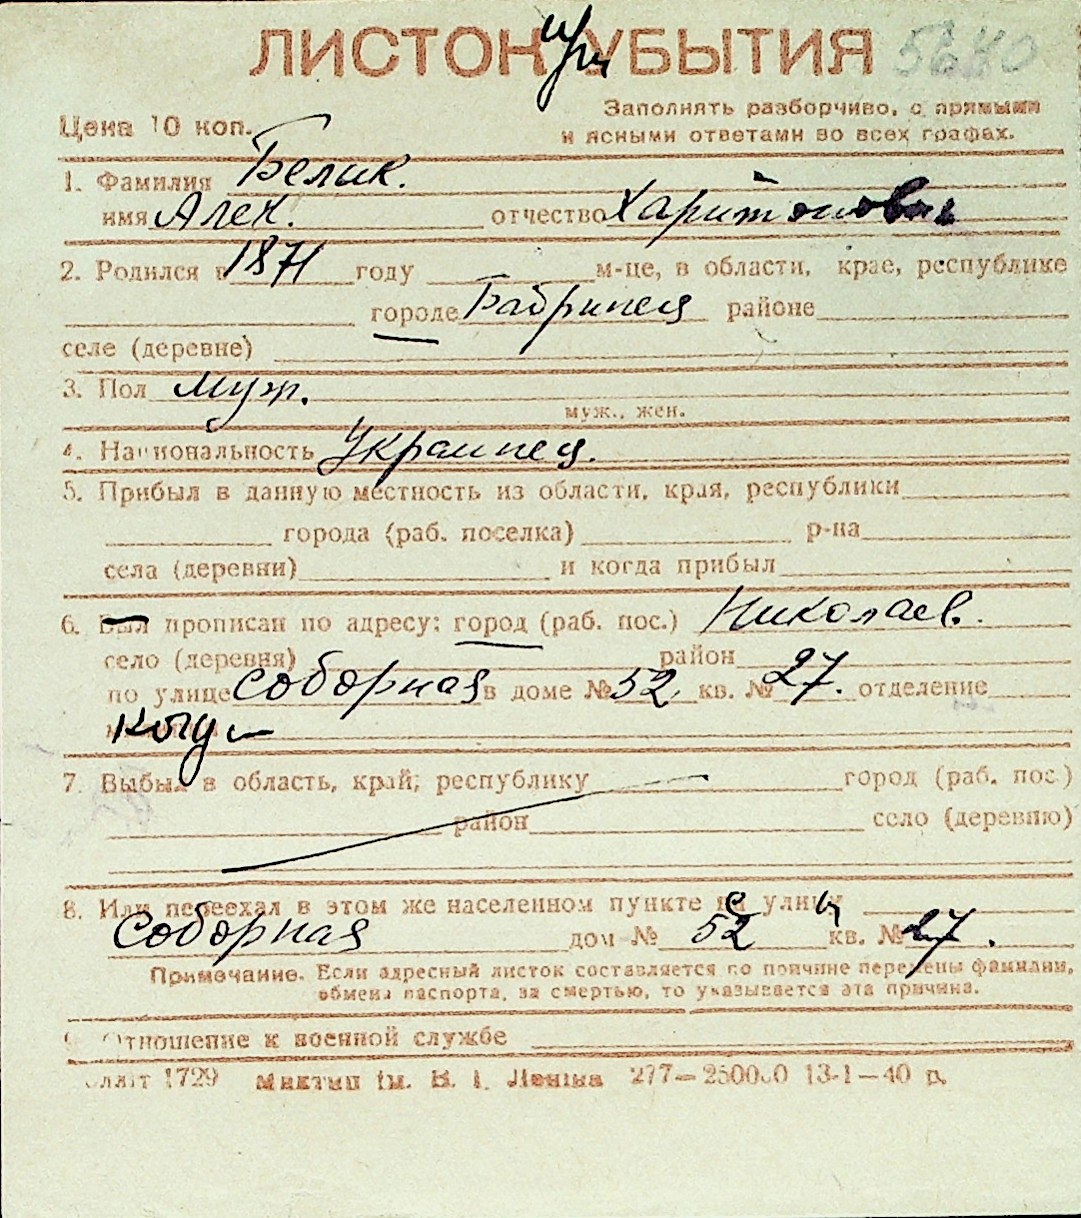 ЛИСТОК УБЫТИЯ 5640
Заполнять разборчиво, с прямыми
Цена 10 коп.
и ясными ответами во всех графах.
1. Фамилия Белик.
имя Алек. отчество Харитонович
2. Родился в 1871 году м-це, в области, крае, республике
городе Бабринец районе
селе (деревне)
3. Пол муж.
муж., жен.
4. Национальность Украинец.
5. Прибыл в данную местность из области, края, республики
города (раб. поселка) р-на
села (деревни) и когда прибыл
6. Был прописан по адресу: город (раб. пос.) Николаев.
село (деревня) район
по улице Соборная в доме № 52 кв. № 27. отделение
7. Выбыл в область, край, республику город (раб. пос.)
район село (деревню)
8. Или переехал в этом же населенном пункте на улицу
Соборная дом № 52 кв. № 27.
Примечание. Если адресный листок составляется по причине перемены фамилии,
обмена паспорта, за смертью, то указывается эта причина.
Отношение к военной службе
1729 Миктип ім. В. І. Леніна 277—250000 13-1—40 р.